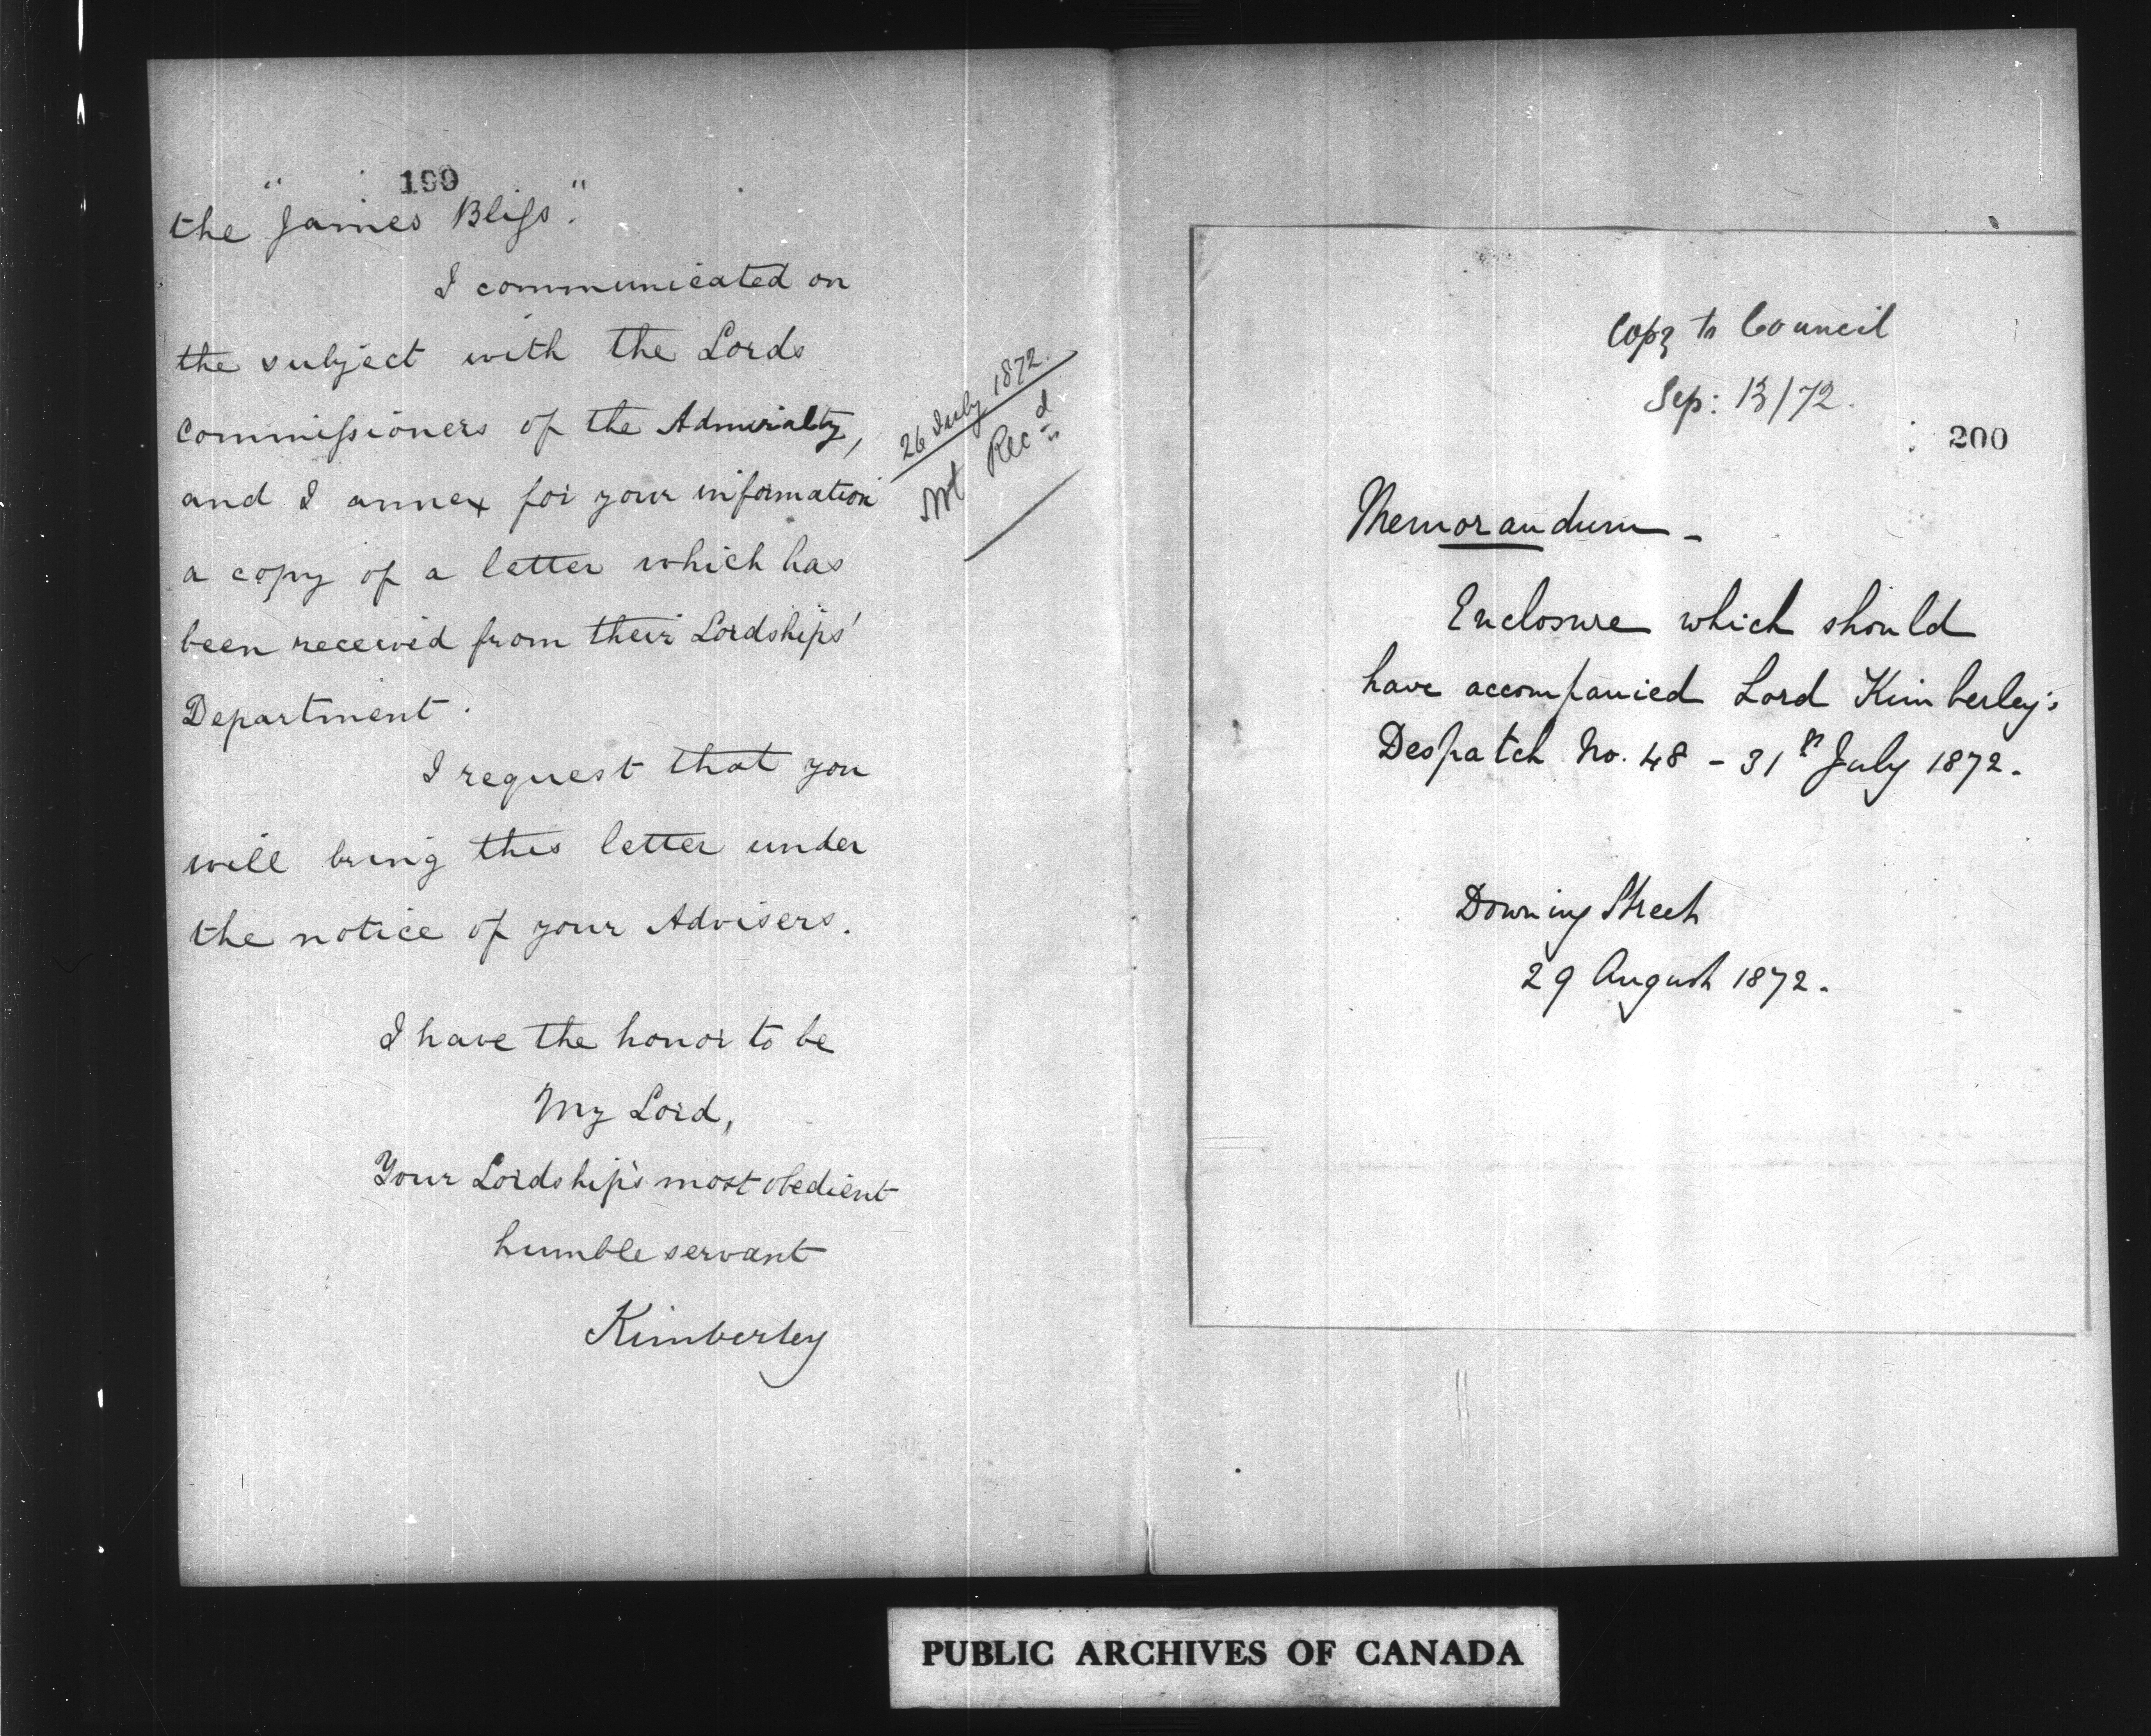 199
the "James Bliss".
I communicated on
the subject with the Lords
Commissioners of the Admiralty,
and I annex for your information
a copy of a letter which has
been received from their Lordships'
Department.
I request that you
will bring this letter under
the notice of your Advisers.
I have the honor to be
My Lord,
Your Lordship's most obedient
humble servant
Kimberley
26 July 1872.
Not Rec^d
Copy to Council
Sep: 13/72.
200
Memorandum -
Enclosure which should
have accompanied Lord Kimberley's
Despatch No. 48 - 31st July 1872.
Downing Street
29 August 1872.
PUBLIC ARCHIVES OF CANADA